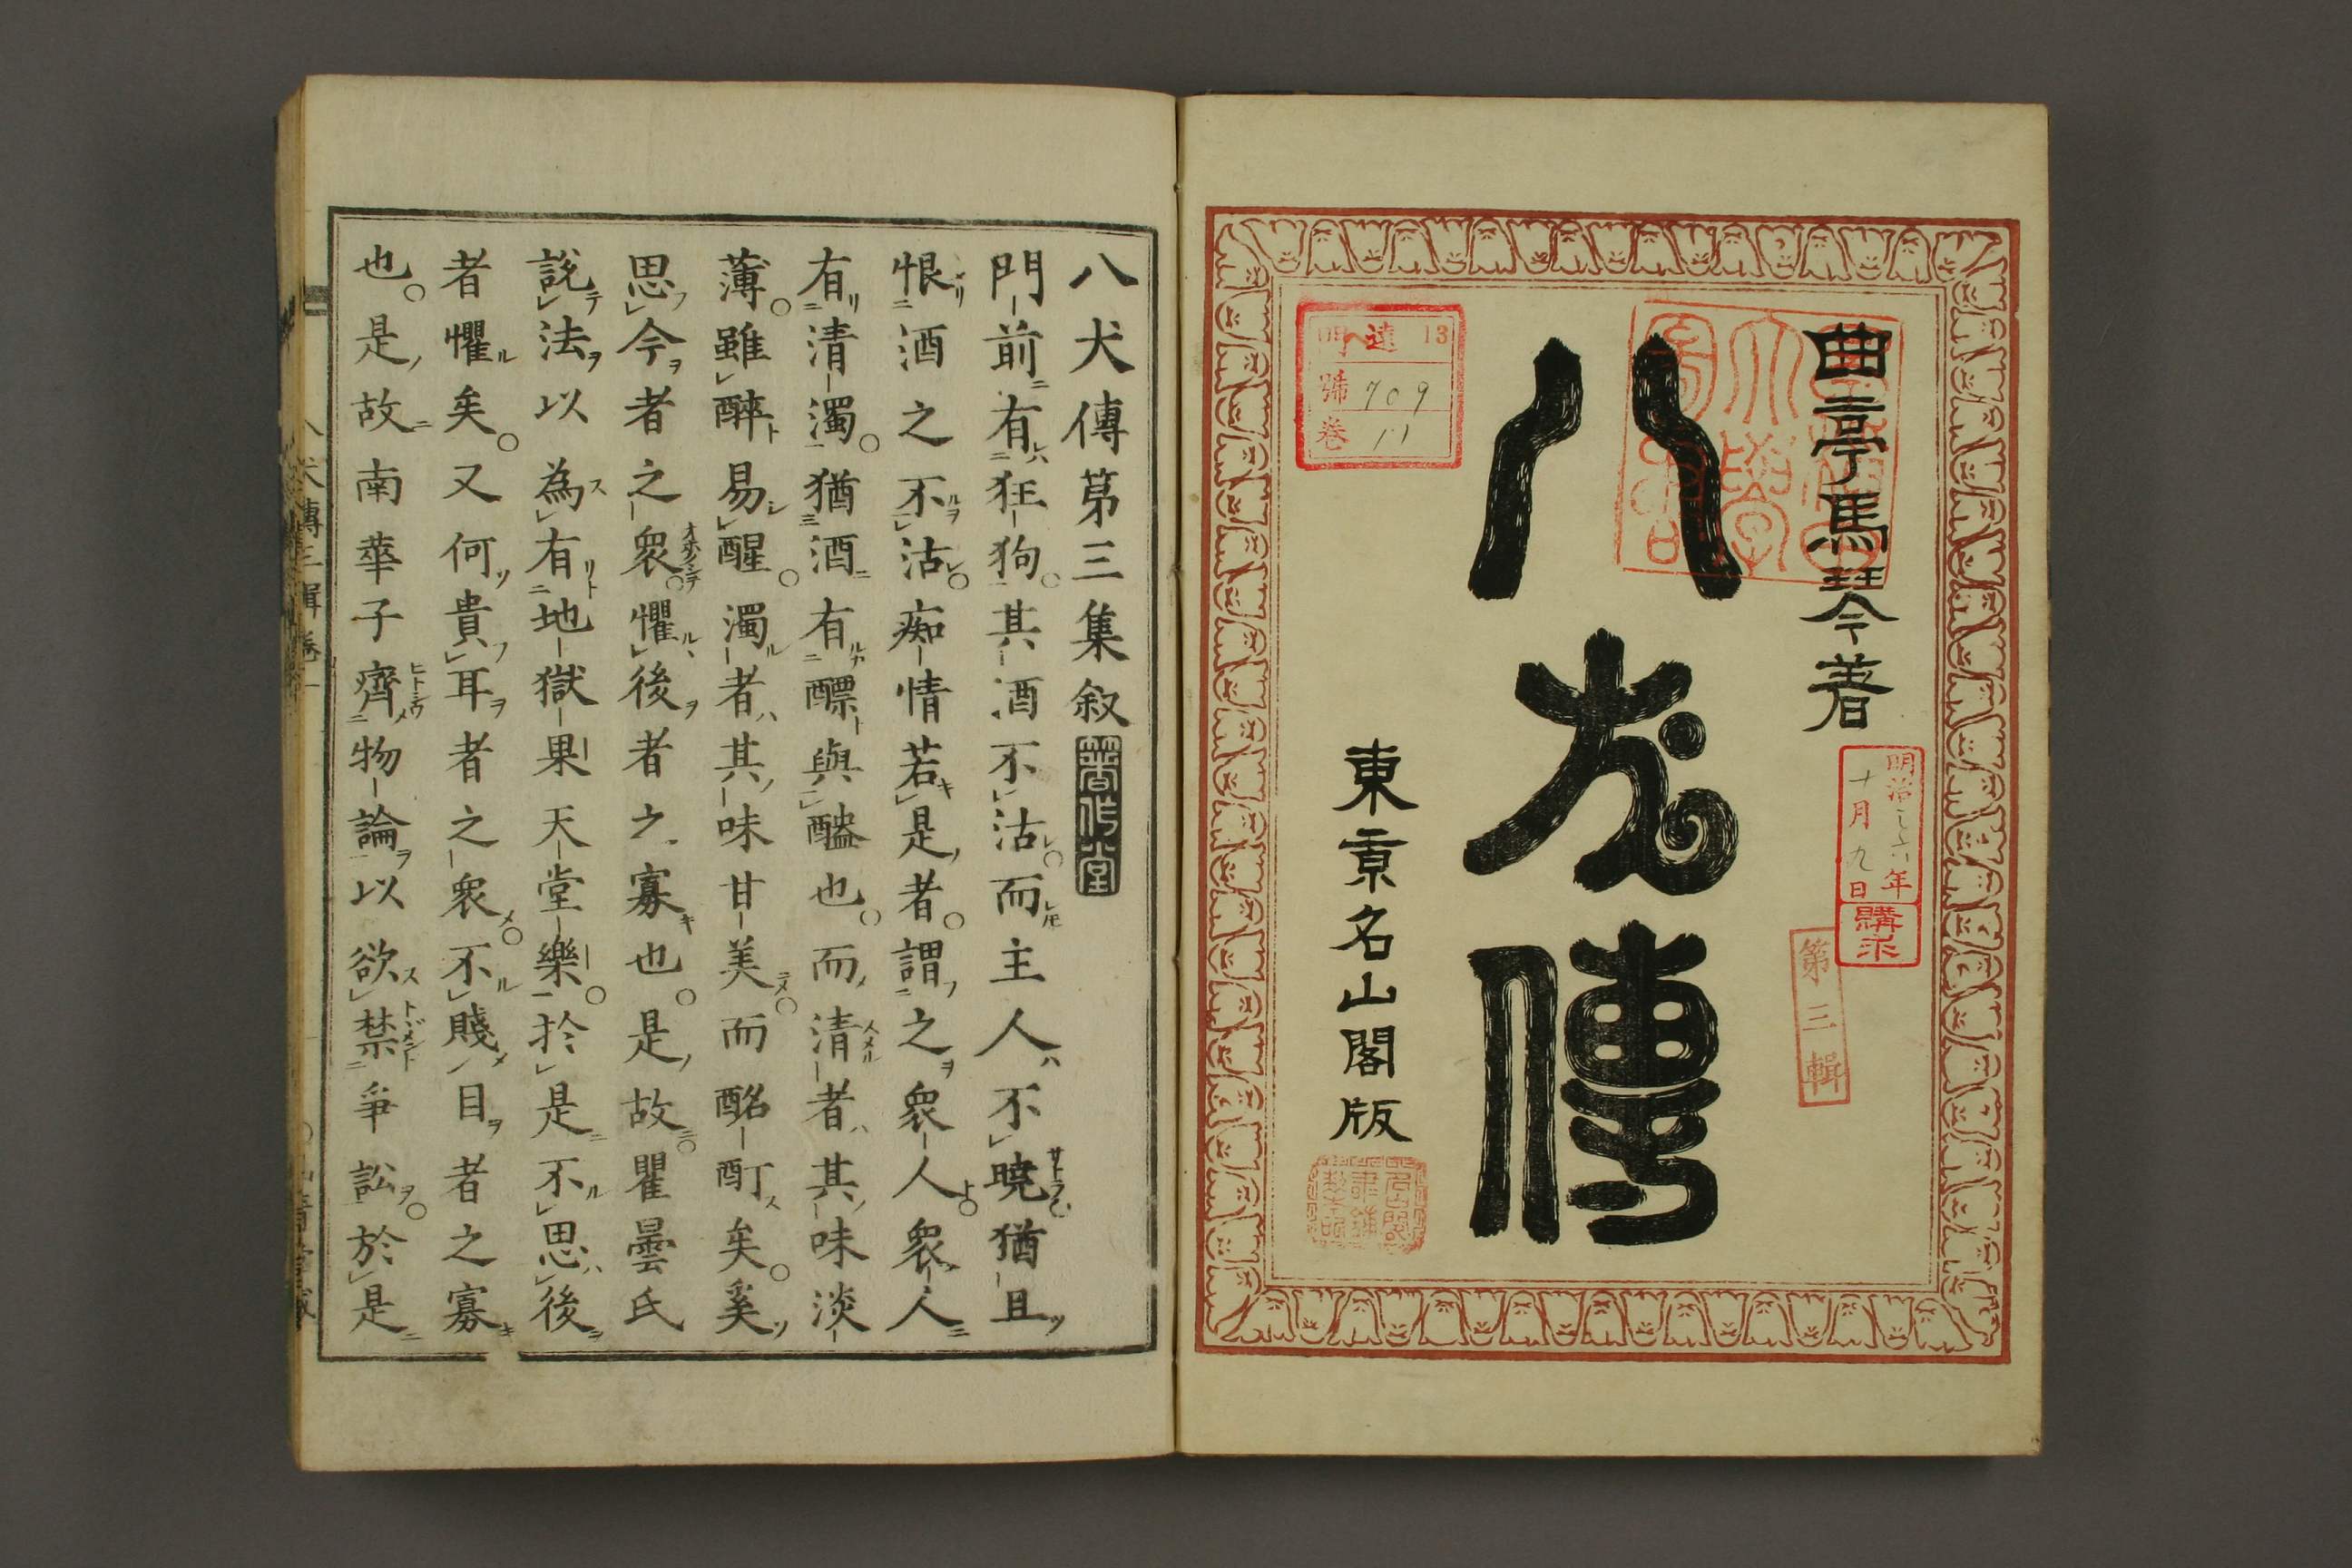 曲亭馬琴著
八犬傳
東京名山閣版
第三輯
明治
年
十月九日
購求
門
遠
13
號
709
卷
11
八犬傳第三集叙
門前有狂狗其酒不沽而主人不曉猶且
恨酒之不沽痴情若是者謂之衆人衆人
有清濁猶酒有醥與醠也而清者其味淡
薄雖醉易醒濁者其味甘美而酩酊矣奚
思今者之衆懼後者之寡也是故瞿曇氏
說法以為有地獄果天堂樂於是不思後
者懼矣又何貴耳者之衆不賤目者之寡
也是故南華子齊物論以欲禁爭訟於是